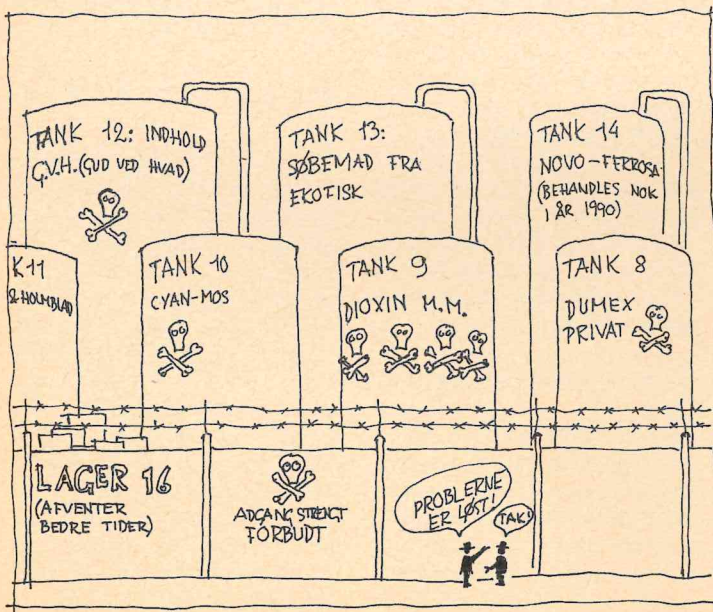 TANK 12: INDHOLD
G.V.H. (GUD VED HVAD)
TANK 13:
SØBEMAD FRA
EKOTISK
TANK 14
NOVO-FERROSA
(BEHANDLES NOK
I ÅR 1990)
K 11
& HOLMBLAD
TANK 10
CYAN-MOS
TANK 9
DIOXIN M.M.
TANK 8
DUMEX
PRIVAT
LAGER 16
(AFVENTER
BEDRE TIDER)
ADGANG STRENGT
FORBUDT
PROBLERNE
ER LØST!
TAK!